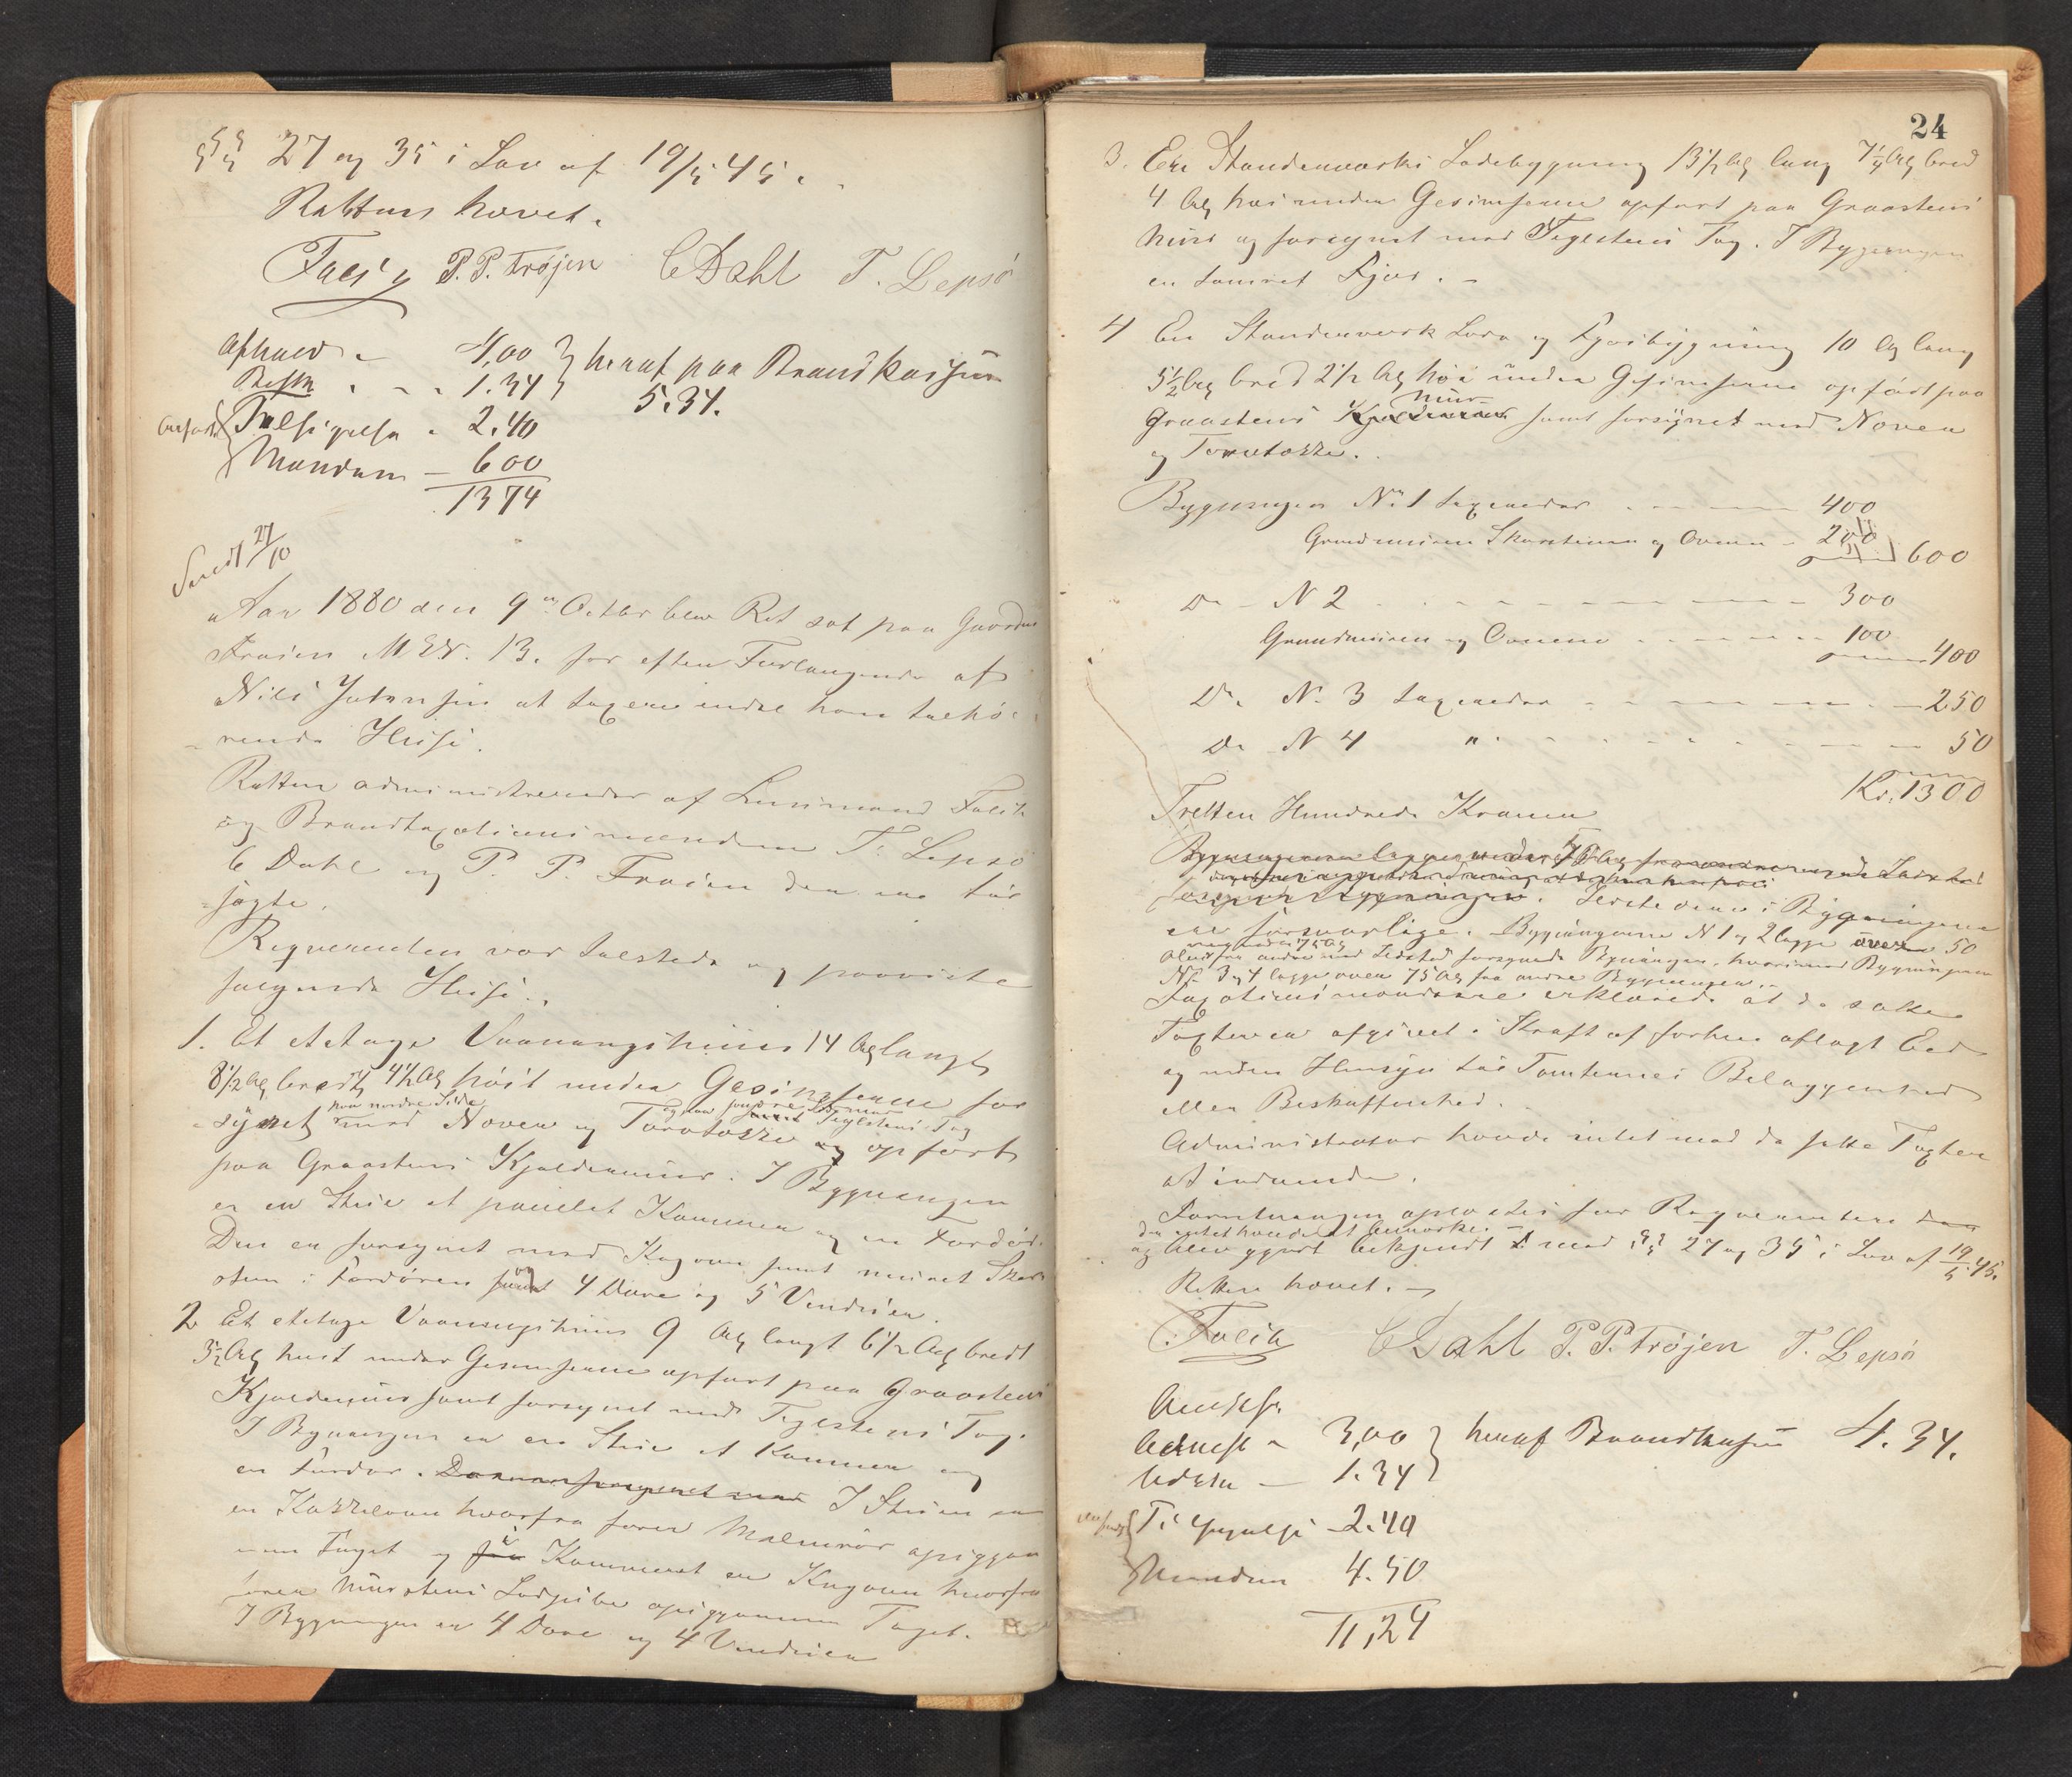 §§ 27 og 35 i Lov af 19/5 45.
Retten hævet.
P. P. Frøjen C Dahl T. Lepsö
4,00 } heraf paa Brandkassen
1.34 } 5.34.
2.40
6 00
13 74
Sendt 27/10
Aar 1880 den 9de Octbr blev Ret sat paa Gaarden
Frøien M. No. 13. for efter Forlangende af
Nils Johnsen at taxere endel ham tilhö-
rende Huse.
Retten administreredes af Lensmand
og Brandtaxationsmændene T. Lepsö
C Dahl og P. P. Frøien den
Reqvirenten var tilstede og paaviste
følgende Huse.
1. Et 1 Etages Vaaningshuus 14 Al langt
8 1/2 Al bredt, 4 1/2 Al höit under Gesimserne for
paa nordre Side og paa søndre Side med
synet med Never og Torvtække samt Teglsteens Tag og opført
paa Graasteens Kjeldermuur. I Bygningen
er en Stue et panelet Kammer og en Fordör.
Den er forsynet med Kogovn samt muret Skor-
sten i Fordören samt og 4 Döre og 5 Vinduer.
2 Et 1 Etages Vaaningshuus 9 Al langt 6 1/2 Al bredt
3 1/2 Al høit under Gesimserne opført paa Graasteens
Kjeldermuur samt forsynet med Teglsteens Tag.
I Bygningen er en Stue et Kammer og
en Fordør. Den er forsynet med I Stuen er
en Kakkelovn hvorfra fører Malmrör opigjen-
nem Taget og fra i Kammeret en Kogovn hvorfra
fører Muurstens Ludpibe opigjennem Taget.
I Bygningen er 4 Døre og 4 Vinduer
24
3. En Standerværks Ladebygning 13 1/2 Al lang 7 1/4 Al bred
4 Al høi under Gesimserne opført paa Graasteens
Muur og forsynet med Teglsteens Tag. I Bygningen
en tømret Fjøs.
4 En Standerværk Løe og Fjøsbygning 10 Al lang
5 1/2 Al bred 2 1/2 Al høi under Gesimserne opført paa
Muur
Graasteens samt forsynet med Never
og Torvtække.
Bygningen No. 1 taxeredes 400
Grundmuren Skorstenen og Ovnen 200 600
Do N 2 300
Grundmuren og Ovnene 100 400
Do N. 3 taxeredes 250
Do N 4 " 50
Kr. 1300
Tretten Hundrede Kroner
Ildstederne i Bygningerne
ere forsvarlige. Bygningerne N 1 og 2 ligge over 50
men under 75 Al
Alen fra andre med Ildsted forsynede Bygninger, hvorimod Bygningerne
N. 3 og 4 ligge over 75 Al fra andre Bygninger.
Taxationsmændene erklærede at de satte
Taxter er afgivet i Kraft af forhen aflagt Eed
og uden Hensyn til Tomternes Beliggenhed
eller Beskaffenhed.
Administrator havde intet mod de satte Taxter
at indvende.
Forretningen oplæstes for Reqvirenten
der intet havde at bemærke
og blev gjort bekjendt med §§ 27 og 35 i Lov af 19/5 45.
Retten hævet.
C Dahl P. P. Frøjen T. Lepsö
3,00 } heraf Brandkassen 4.34.
1.34 }
2.40
4.50
11,24